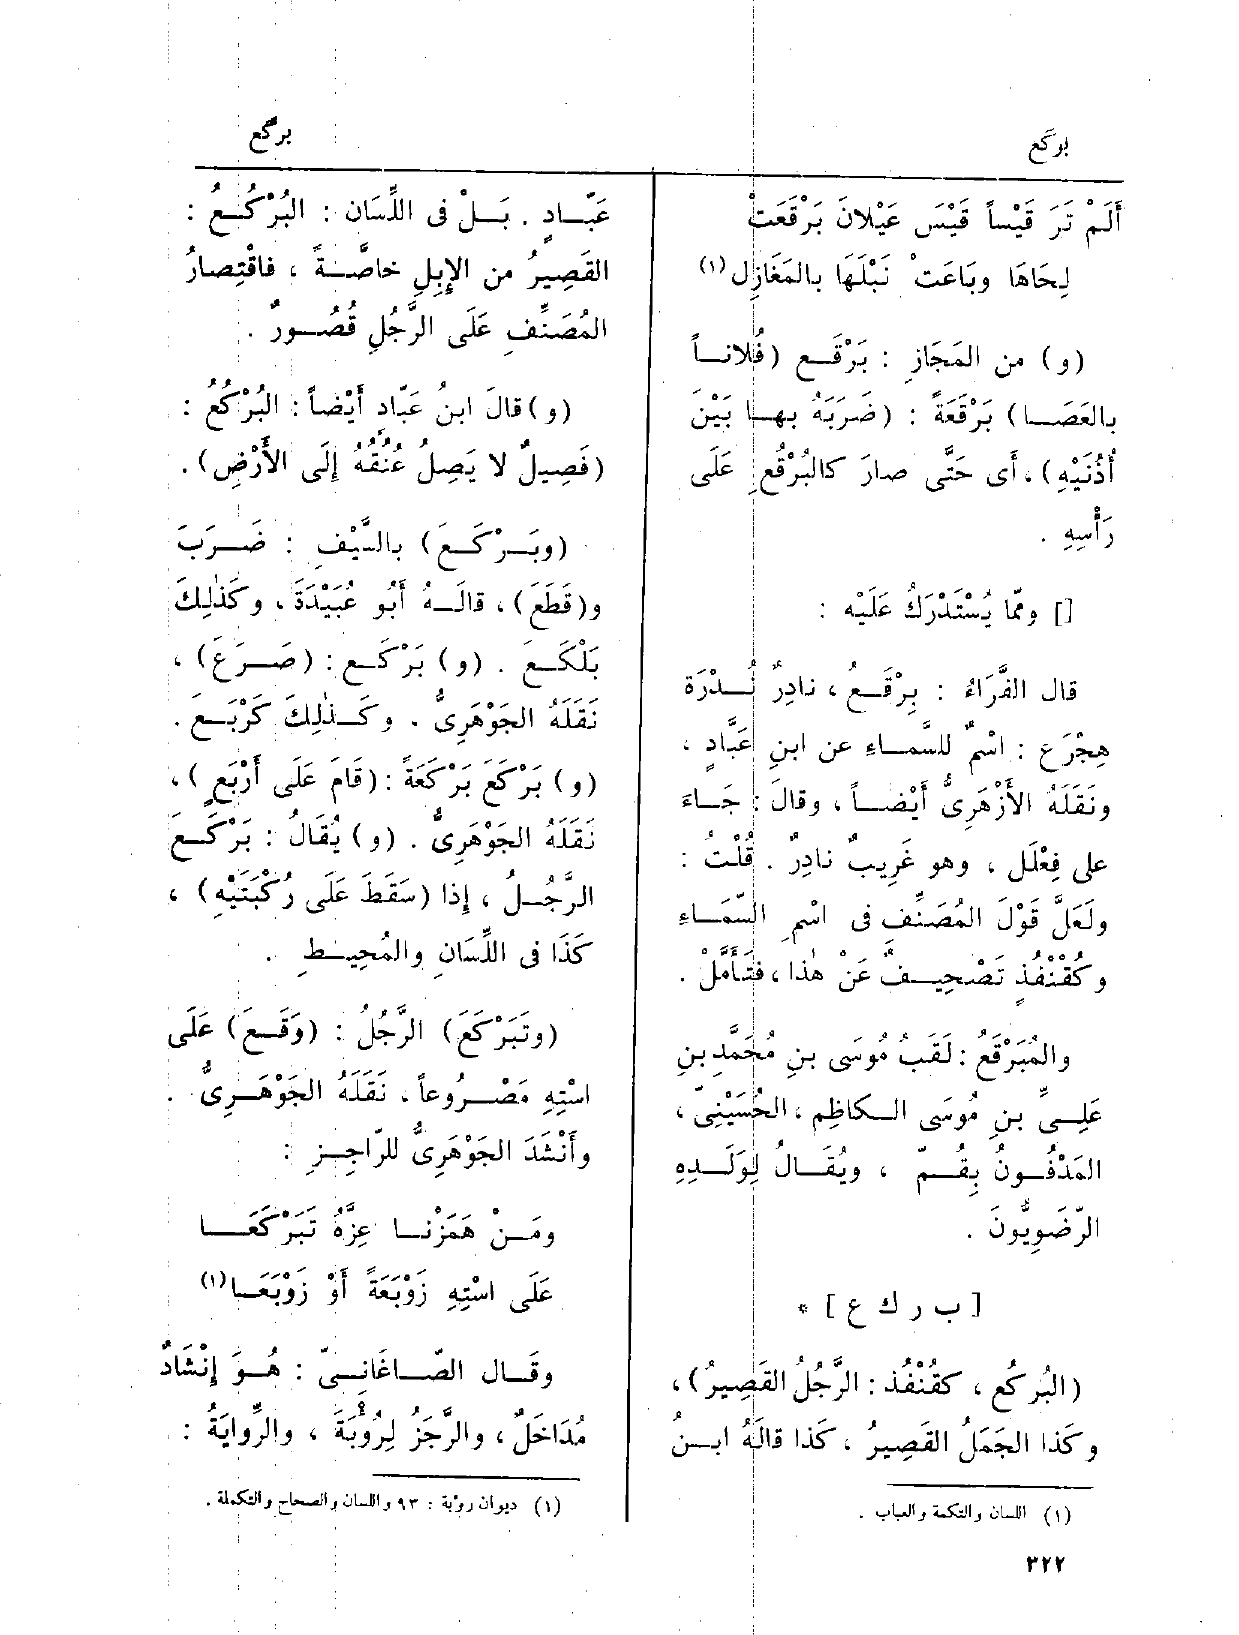 بركع
بركع
أَلَمْ تَرَ قَيْساً قَيْسَ عَيْلانَ بَرْقَعَتْ
لِحَاهَا وبَاعَتْ نَبْلَهَا بالمَغَازِلِ(١)
(و) من المَجَازِ : بَرْقَـع (فُلاناً
بالعَصَـا) بَرْقَعَةً : (ضَرَبَهُ بهـا بَيْنَ
أُذُنَيْهِ) ، أى حَتَّى صارَ كالبُرْقُعِ عَلَى
رَأْسِهِ .
[] وممّا يُسْتَدْرَكُ عَلَيْه :
قال الفَّرَاءُ : بِرْقَـعُ ، نادِرٌ نُـدْرَةَ
هِجْرَع : اسْمٌ للسَّمـاءِ عن ابنِ عَبَّادٍ ،
ونَقَلَهُ الأَزْهَرِىُّ أَيْضـاً ، وقالَ : جَـاءَ
على فِعْلَل ، وهو غَرِيبٌ نادِرٌ . قُلْتُ :
ولَعَلَّ قَوْلَ المُصَنِّف فى اسْمِ السَّمَـاءِ
وكَقُنْفُذٍ تَصْحِيـفٌ عَنْ هٰذا ، فتَأَمَّلْ .
والمُبَرْقَعُ : لَقَبُ مُوسَى بنِ مُحَمَّدِ بنِ
عَلِـىِّ بنِ مُوسَى الـكاظِمِ ، الحُسَيْنِىّ ،
المَدْفُـونُ بِقُـمّ ، ويُقَـالُ لِوَلَـدِهِ
الرّضَوِيُّونَ .
[ ب ر ك ع ] *
(البُرْكُع ، كقُنْفُذ : الرَّجُلُ القَصِيرُ) ،
وكذا الجَمَلُ القَصِيرُ ، كَذا قالَهُ ابـنُ
(١) اللسان والتكمة والعباب .
عَبّـادٍ . بَـلْ فى اللِّسَان : البُرْكُـعُ :
القَصِيرُ من الإِبِلِ خاصَّـةً ، فاقْتِصارُ
المُصَنِّفِ عَلَى الرَّجُلِ قُصُـورٌ .
(و) قالَ ابنُ عَبّادٍ أَيْضاً : البُرْكُعُ :
(فَصِيلٌ لا يَصِلُ عُنُقُهُ إِلَى الأَرْضِ) .
(وبَـرْكَـعَ) بالسَّيْفِ : ضَـرَبَ
و(قَطَعَ) ، قالَـهُ أَبُو عُبَيْدَةَ ، وكَذٰلِكَ
بَلْكَـعَ . (و) بَرْكَـع : (صَـرَعَ) ،
نَقَلَهُ الجَوْهَرِىُّ . وكَـذٰلِكَ كَرْبَـعَ .
(و) بَرْكَعَ بَرْكَعَةً : (قَامَ عَلَى أَرْبَعٍ) ،
نَقَلَهُ الجَوْهَرِىُّ . (و) يُقَالُ : بَرْكَـعَ
الرَّجُـلُ ، إِذا (سَقَطَ عَلَى رُكْبَتَيْهِ) ،
كَذَا فى اللِّسَانِ والمُحِيـطِ .
(وتَبَرْكَعَ) الرَّجُلُ : (وَقَـعَ) عَلَى
اسْتِهِ مَصْـرُوعاً ، نَقَلَهُ الجَوْهَـرِىُّ .
وأَنْشَدَ الجَوْهَرِىُّ للرّاجِـزِ :
ومَـنْ هَمَزْنـا عِزَّهُ تَبَرْكَعَـا
عَلَى اسْتِهِ زَوْبَعَةً أَوْ زَوْبَعَـا(١)
وقَـال الصّـاغَانِـىّ : هُـوَ إِنْشَادٌ
مُدَاخَلٌ ، والرَّجَزُ لِرُؤْبَةَ ، والرِّوايَةُ :
(١) ديوان رؤبة : ٩٣ واللسان والصحاح والتكملة .
٣٢٢